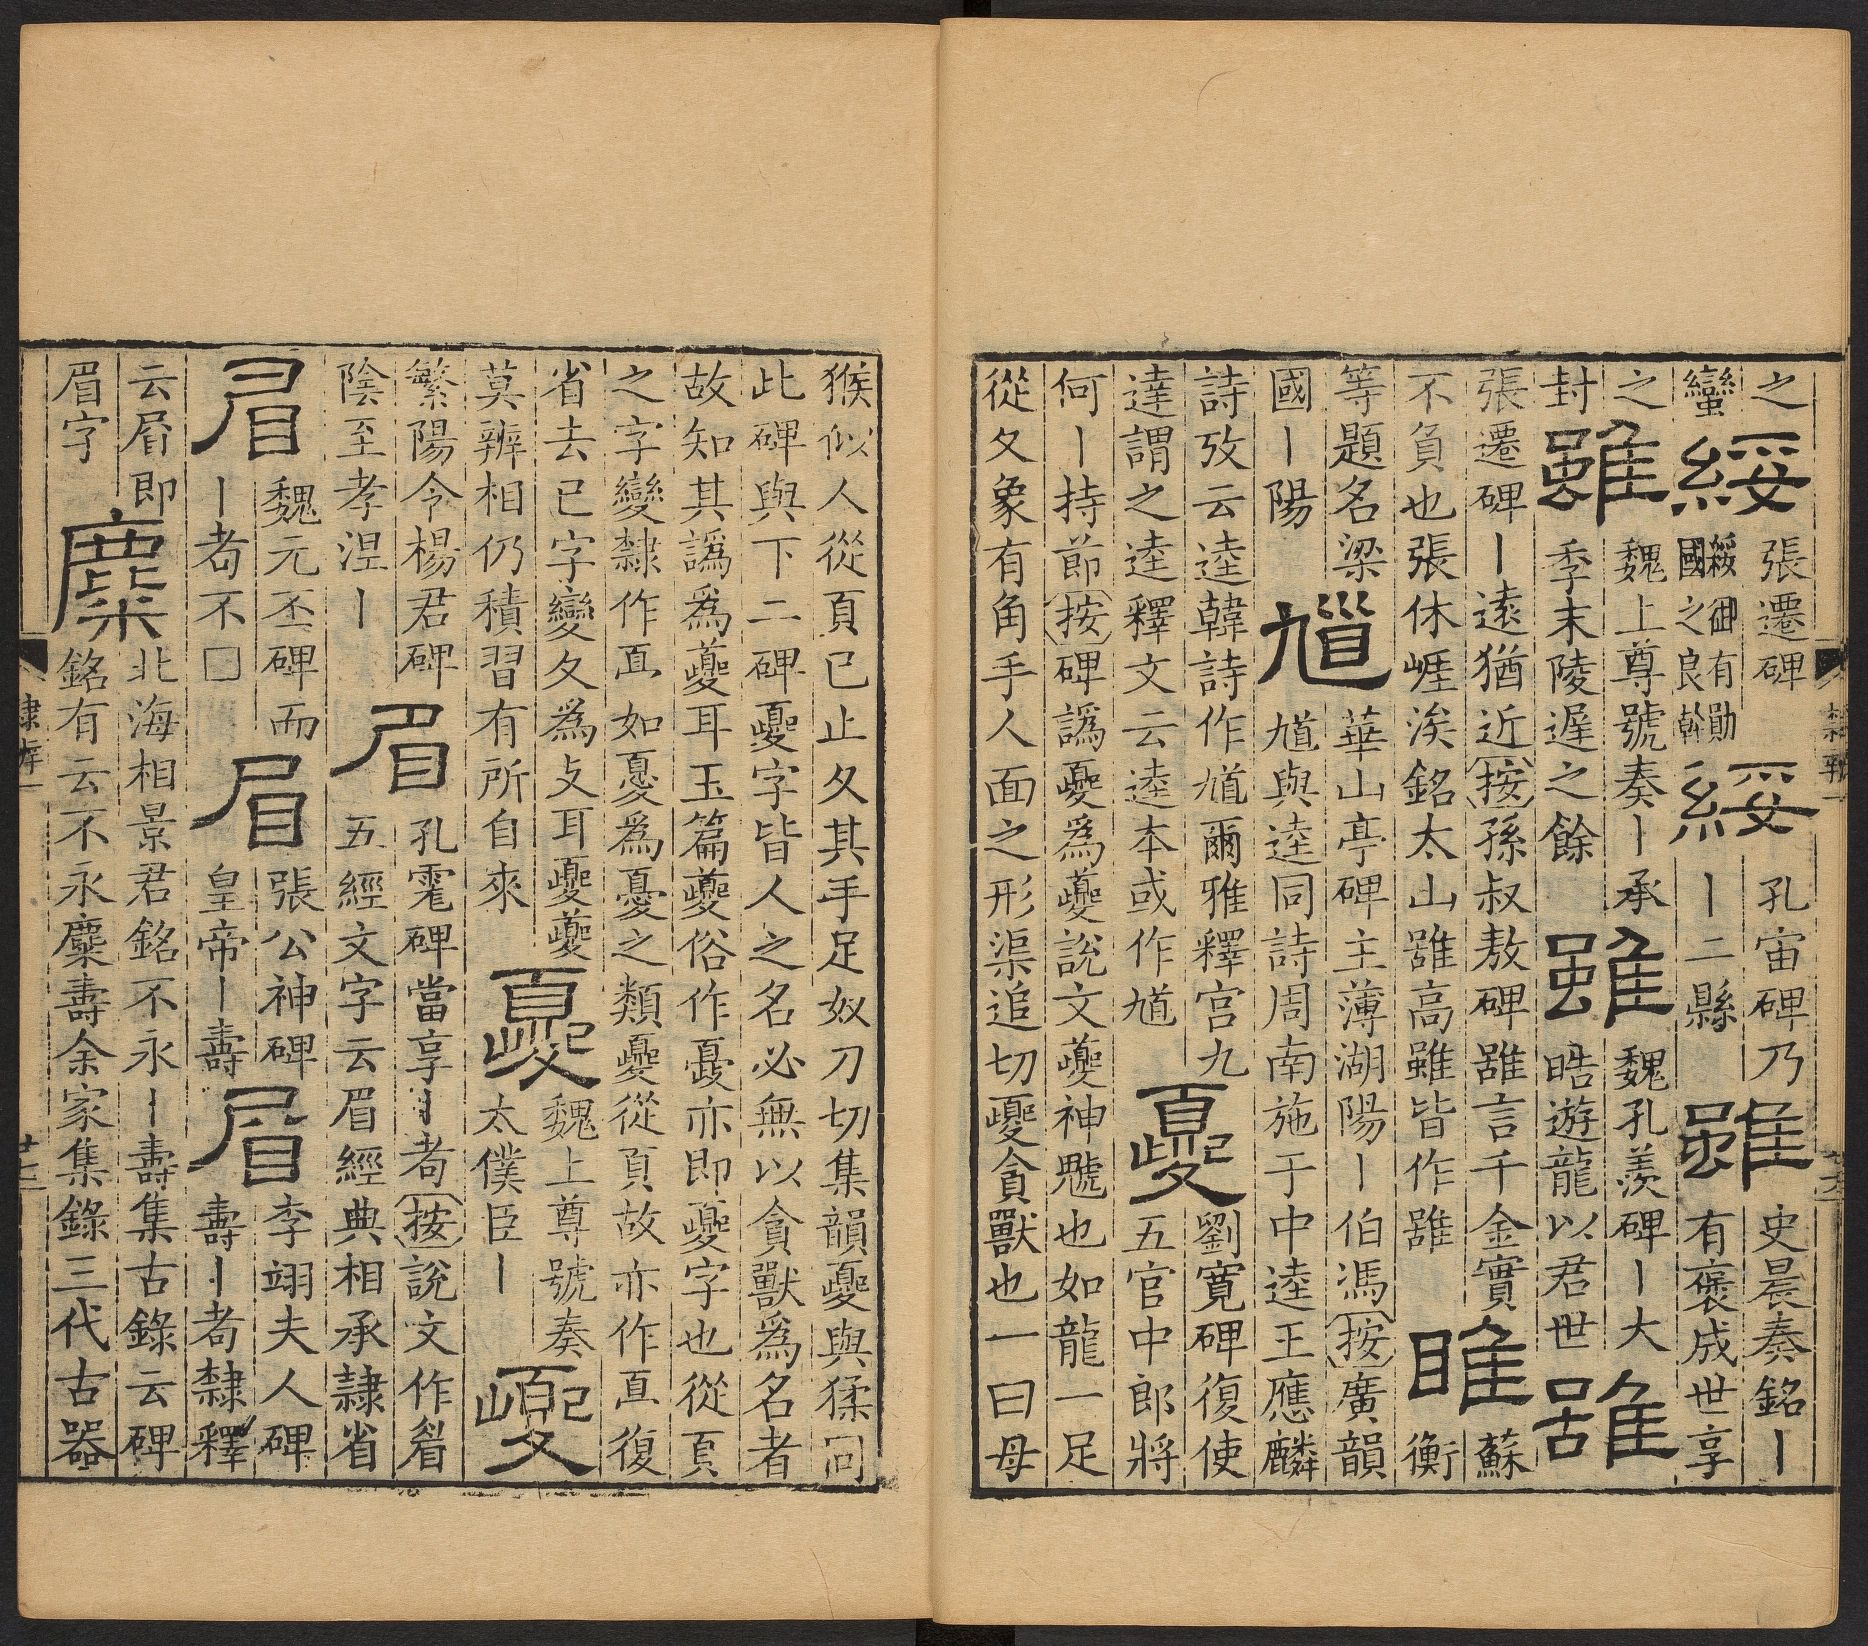 之蠻綏張遷碑綏御有勛國之良幹綏孔宙碑乃丨二縣雖史晨奏銘丨有褒成世享
之封雖魏上尊號奏丨承季末陵遲之餘雖魏孔羨碑丨大晧遊龍以君世雖
張遷碑丨遠猶近按孫叔敖碑雖言千金實不負也張休崕涘銘太山雖高雖皆作雖睢蘇衡
等題名梁國丨陽馗華山亭碑主薄湖陽丨伯馮按廣韻馗與逵同詩周南施于中逵王應麟
詩攷云逵韓詩作馗爾雅釋宫九達謂之逵釋文云逵本或作馗夒劉寬碑復使五官中郎將
何丨持節按碑譌夒為夔說文夔神魖也如龍一足
從夊象有角手人面之形渠追切夒貪獸也一曰母
猴似人從頁已止夊其手足奴刀切集韻夒與猱同
此碑與下二碑夒字皆人之名必無以貪獸為名者
故知其譌為夔耳玉篇夔俗作憂亦即夒字也從頁
之字變隸作直如憂為憂之類夒從頁故亦作直復
省去已字變夊為攴耳夒夔莫辨相仍積習有所自來夒魏上尊號奏太僕臣丨夒
繁陽令楊君碑陰至孝涅丨眉孔霍碑當享丨耇按說文作睂五經文字云眉經典相承隷省
眉魏元丕碑而丨耇不□眉張公神碑皇帝丨壽眉李翊夫人碑壽丨耇隸釋
云眉即眉字麋北海相景君銘不永丨壽集古錄云碑銘有云不永麋壽余家集錄三代古器
隸辨一
廿六
隸辨一
廿七